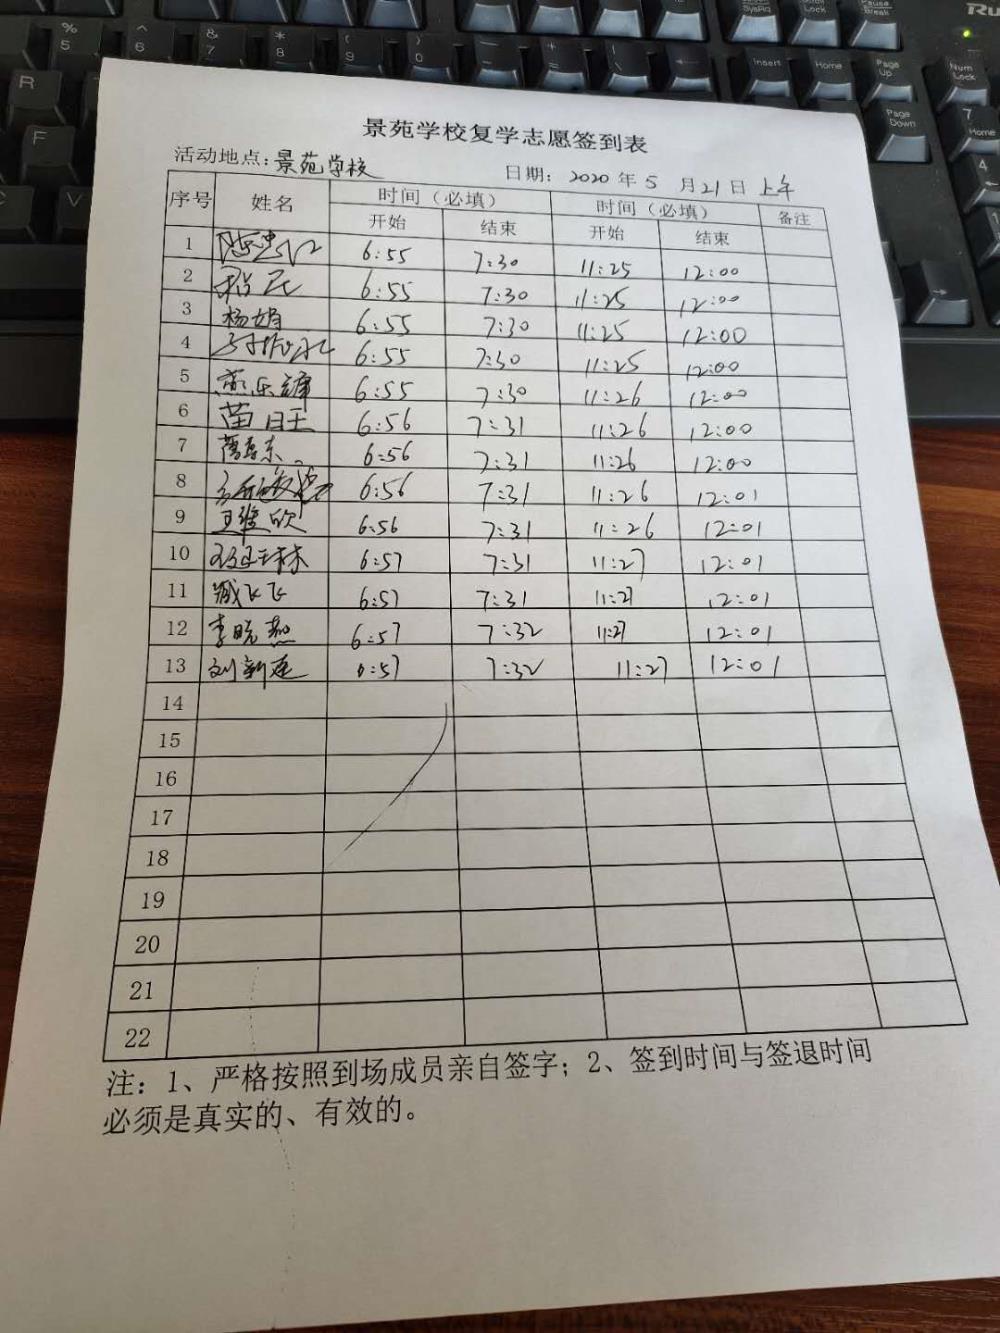 景苑学校复学志愿签到表
活动地点:景苑学校 日期: 2020 年 5 月 21 日 上午
序号 姓名 时间(必填) 时间(必填) 备注
开始 结束 开始 结束
1 6:55 7:30 11:25 12:00
2 6:55 7:30 11:25 12:00
3 杨娟 6:55 7:30 11:25 12:00
4 6:55 7:30 11:25 12:00
5 6:55 7:30 11:26 12:00
6 苗旺 6:56 7:31 11:26 12:00
7 6:56 7:31 11:26 12:00
8 6:56 7:31 11:26 12:01
9 王维欣 6:56 7:31 11:26 12:01
10 6:57 7:31 11:27 12:01
11 臧飞飞 6:57 7:31 11:27 12:01
12 李晓燕 6:57 7:32 11:27 12:01
13 刘新莲 6:57 7:32 11:27 12:01
14
15
16
17
18
19
20
21
22
注:1、严格按照到场成员亲自签字;2、签到时间与签退时间
必须是真实的、有效的。